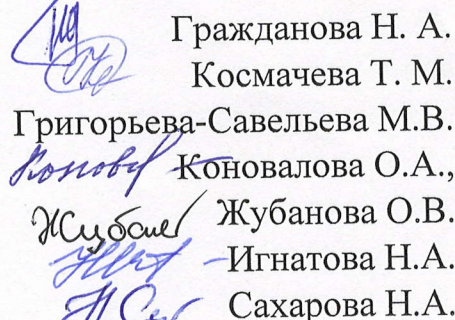 Гражданова Н. А.
Космачева Т. М.
Григорьева-Савельева М.В.
Коновалова О.А.,
Жубанова О.В.
Игнатова Н.А.
Сахарова Н.А.